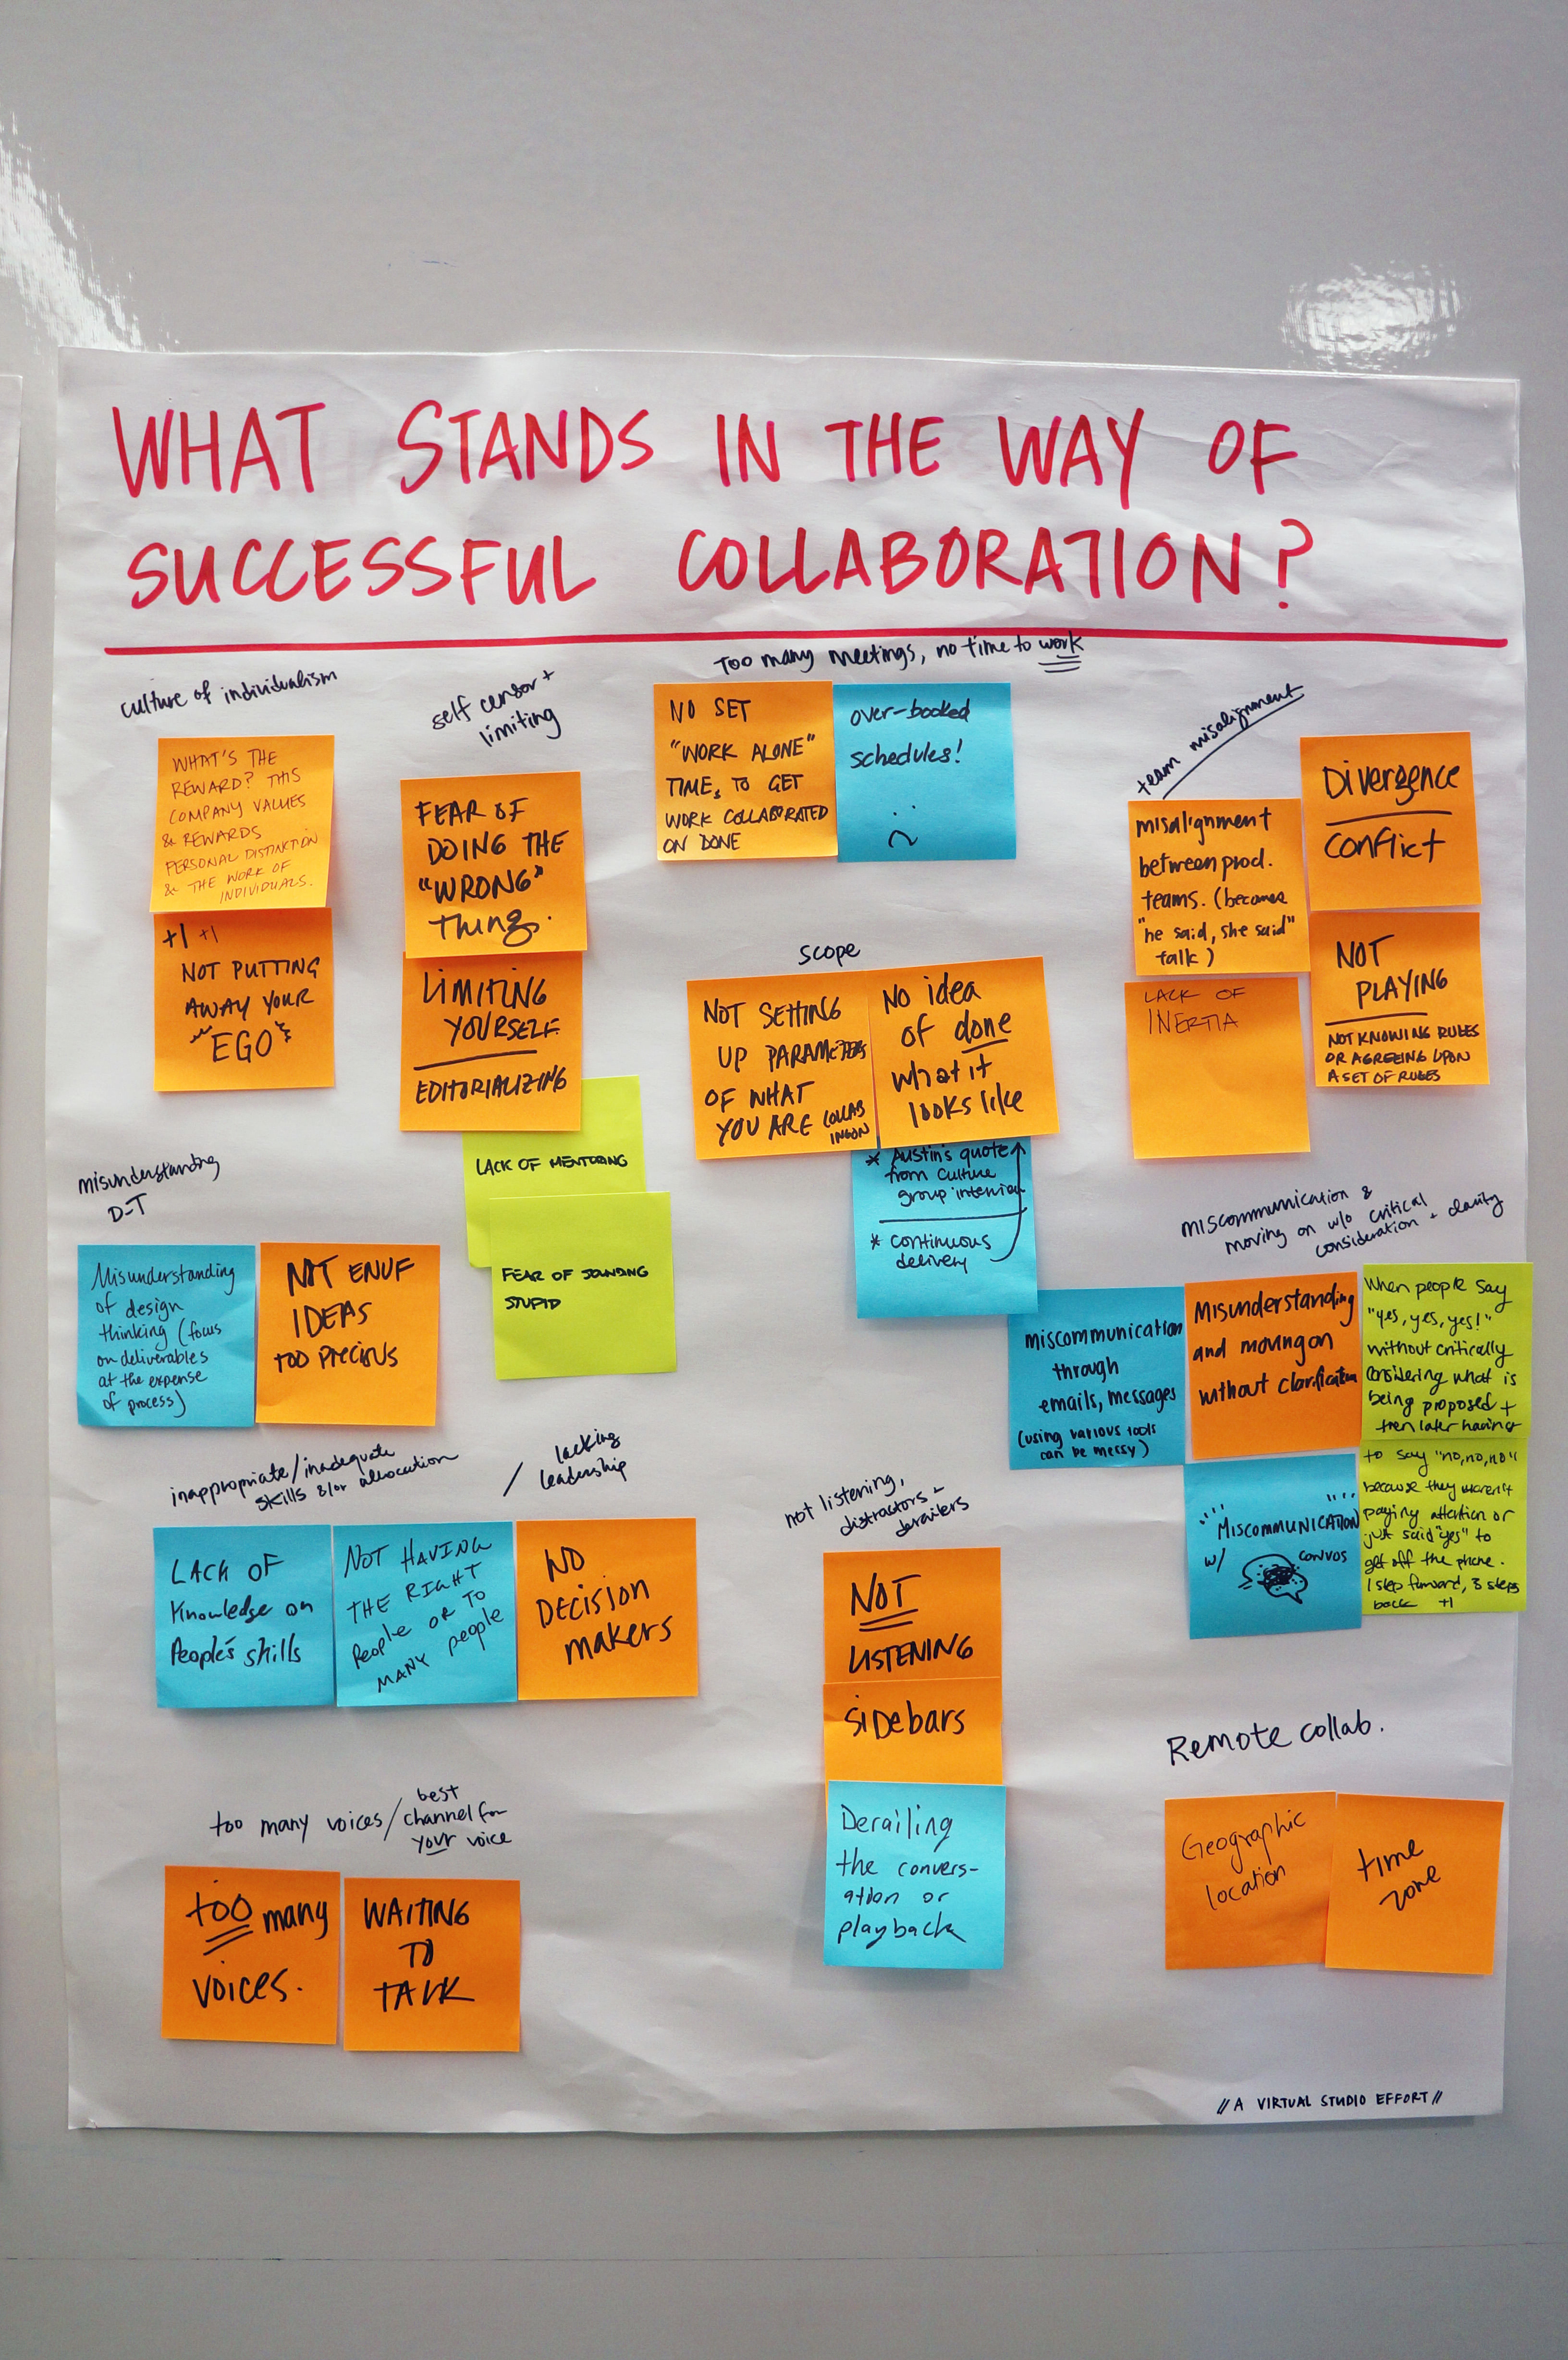 WHAT STANDS IN THE WAY OF
SUCCESSFUL COLLABORATION?
culture of individualism
WHAT'S THE
REWARD? THIS
COMPANY VALUES
& REWARDS
PERSONAL DISTINKTION
& THE WORK OF
INDIVIDUALS.
+1 +1
NOT PUTTING
AWAY YOUR
"EGO"
self censor +
limiting
FEAR OF
DOING THE
"WRONG"
Thing.
LIMITING
YOURSELF
EDITORIALIZING
LACK OF MENTORING
FEAR OF SOUNDING
STUPID
Too many meetings, no time to work
NO SET
"WORK ALONE"
TIME, TO GET
WORK COLLABORATED
ON DONE
over-booked
schedules!
:
scope
NOT SETTING
UP PARAMETERS
OF WHAT
YOU ARE COLLAB
INGON
NO idea
of done
what it
looks like
* Austin's quote
from culture
group interview
* continuous
delivery
team misalignment
misalignment
between prod.
teams. (becomes
"he said, she said"
talk)
Divergence
Conflict
LACK OF
INERTIA
NOT
PLAYING
NOT KNOWING RULES
OR AGREEING UPON
A SET OF RULES
misunderstanding
D-T
Misunderstanding
of design
thinking (focus
on deliverables
at the expense
of process)
NOT ENUF
IDEAS
TOO PRECIOUS
miscommunication &
moving on w/o critical
consideration + clarity
miscommunication
through
emails, messages
(using various tools
can be messy)
Misunderstanding
and moving on
without clarification
When people say
"yes, yes, yes!"
without critically
considering what is
being proposed +
then later having
to say "no, no, no"
because they weren't
paying attention or
just said "yes" to
get off the phone.
1 step forward, 3 steps
back +1
MISCOMMUNICATION
w/ convos
inappropriate/inadequate
skills &/or allocation
/ lacking
leadership
LACK OF
Knowledge on
People's skills
NOT HAVING
THE RIGHT
People OR TO
MANY people
NO
DECISION
makers
not listening,
distractors -
derailers
NOT
LISTENING
SIDebars
Derailing
the convers-
ation or
playback
too many voices/
best
channel for
your voice
too many
voices.
WAITING
TO
TALK
Remote collab.
Geographic
location
time
zone
// A VIRTUAL STUDIO EFFORT //